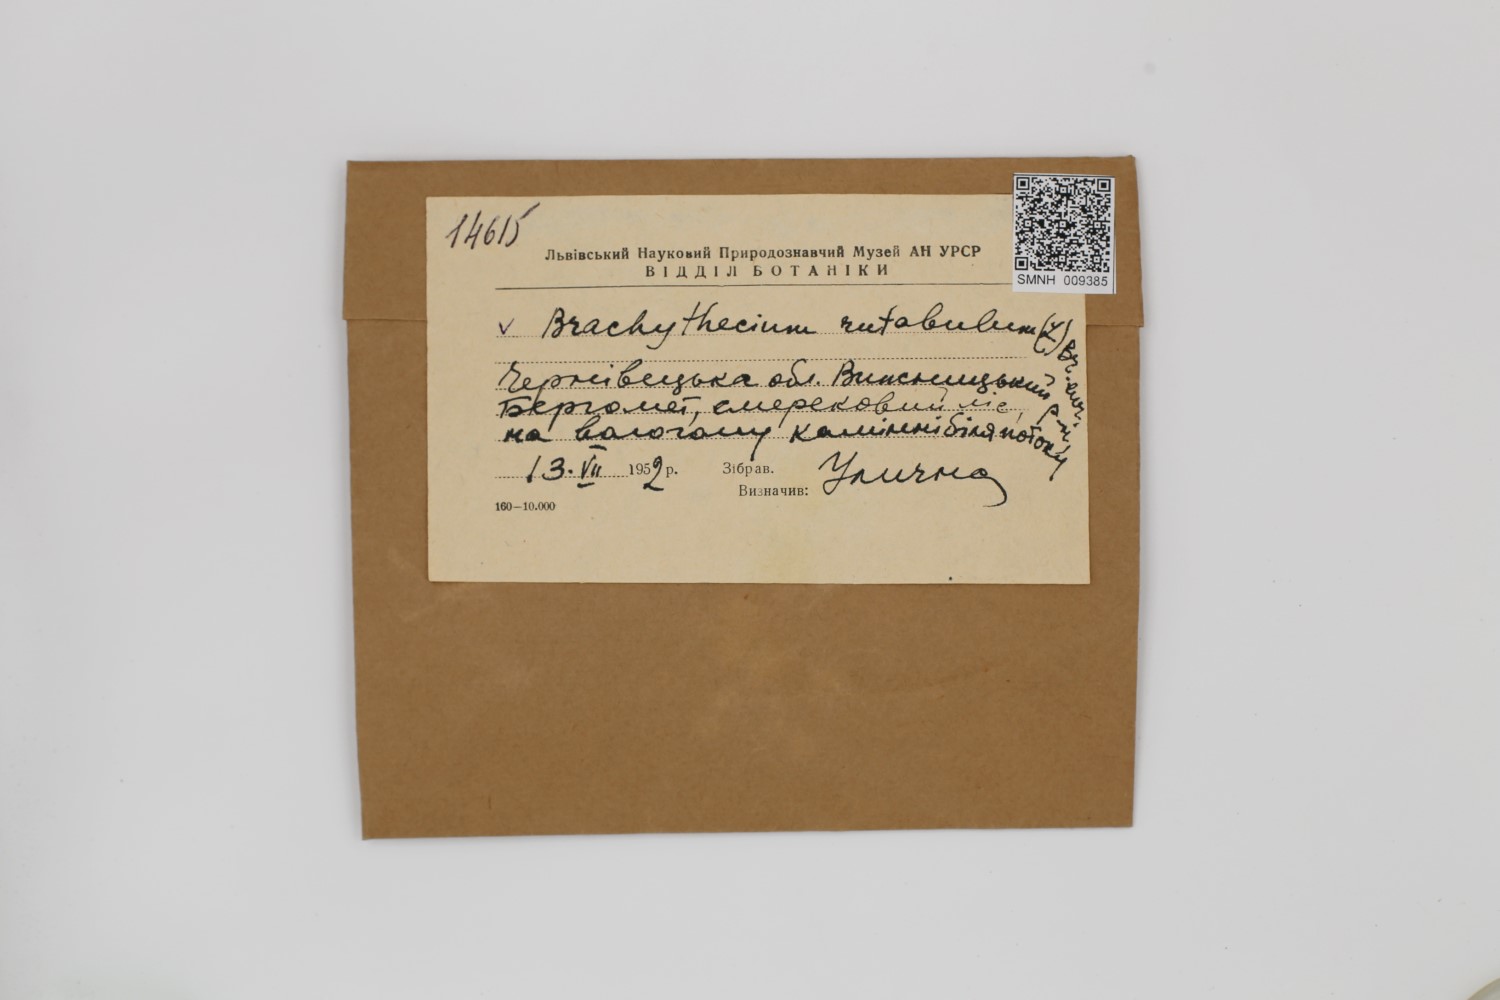 14615
SMNH 009385
Львівський Науковий Природознавчий Музей АН УРСР
ВІДДІЛ БОТАНІКИ
v Brachythecium rutabulum (L) Br. eur.
Чернівецька обл. Вижницький р-н,
Бергомет, смерековий ліс,
на вологому камінні біля потоку
13. VII 1952 р. Зібрав.
Визначив: Улична
160—10.000